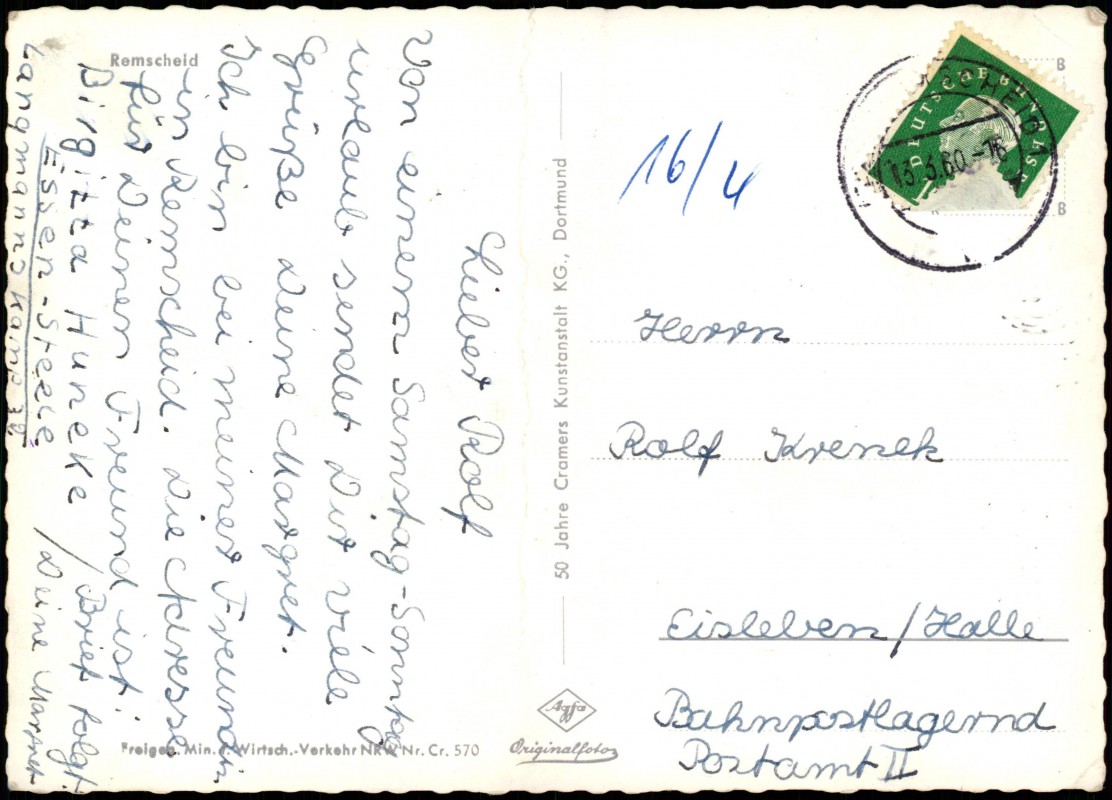 Remscheid
Lieber Rolf
Von einem Samstag-Sonntag
urlaub sendet Dir viele
Grüße Deine Margret.
Ich bin bei meiner Freundin
in Remscheid. Die Adresse
für Deinen Freund ist:
Birgitta Huneke / Brief folgt
Essen-Steele / Deine Margret
Langmannskamp 32
Freigeg. Min. f. Wirtsch.-Verkehr NRW Nr. Cr. 570
50 Jahre Cramers Kunstanstalt KG., Dortmund
Agfa
Originalfoto
16/4
DEUTSCHE BUNDESPOST
13.3.60.-16
B
B
Herrn
Rolf Krenek
Eisleben/Halle
Bahnpostlagernd
Postamt II